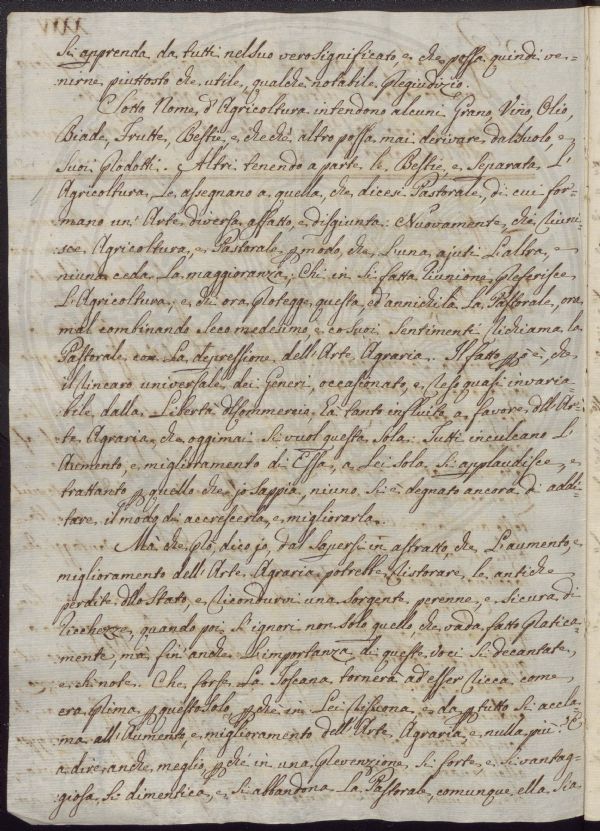 si apprenda da tutti nel suo vero significato e che possa quindi ve-
nirne piuttosto che utile, qualche notabile Pregiudizio.
Sotto Nome d'Agricoltura intendono alcuni Grano, Vino, Olio,
Biade, Frutte, Bestie, e checchè altro possa mai derivare dal suolo, e
suoi Prodotti. Altri tenendo a parte le Bestie, e Separata L'
Agricoltura, Le assegnano a quella, che dicesi Pastorale, di cui for-
mano un' Arte diversa affatto, e disgiunta. Nuovamente, chi Riuni-
:sce Agricoltura, e Pastorale p modo, che L'una ajuti L'altra, e
niuna ceda La maggioranza; Chi in sì fatta riunione Preferisce
L'Agricoltura; e chi ora Protegge questa, ed annichila La Pastorale, ora
mal combinando seco medesimo e co suoi Sentimenti Richiama la
Pastorale con La depressione dell'Arte Agraria. Il fatto pò è, che
il Rincaro universale dei Generi, occasionato, e reso quasi invaria-
bile dalla Libertà di Commercio, hà tanto influito a favore dell'Ar-
te Agraria, che oggimai si vuol questa sola. Tutti inculcano L'
Aumento, e miglioramento di Essa, a Lei sola si applaudisce, e
trattanto p quello che jo sappia, niuno si è degnato ancora di addi-
tare il modo di accrescerla, e migliorarla.
Mà che Prò, dico jo, dal sapersi in astratto, che L'aumento, e
miglioramento dell'Arte Agraria potrebbe Ristorare le antiche
perdite dello Stato, e Ricondurvi una sorgente perenne, e sicura di
ricchezze, quando poi s'ignori non solo quello, che vada fatto Pratica-
mente, ma fin'anche L'importanza di queste voci sì decantate,
e sì note. Che forse La Toscana tornerà ad esser Ricca come
era Prima p questo solo, p che in Lei Risuona, e da p tutto si accla-
ma all'Aumento, e miglioramento dell'Arte Agraria, e nulla più? E
a dire anche meglio, p che in una Prevenzione sì forte, e sì vantag-
giosa si dimentica, e si abbandona La Pastorale, comunque ella sia